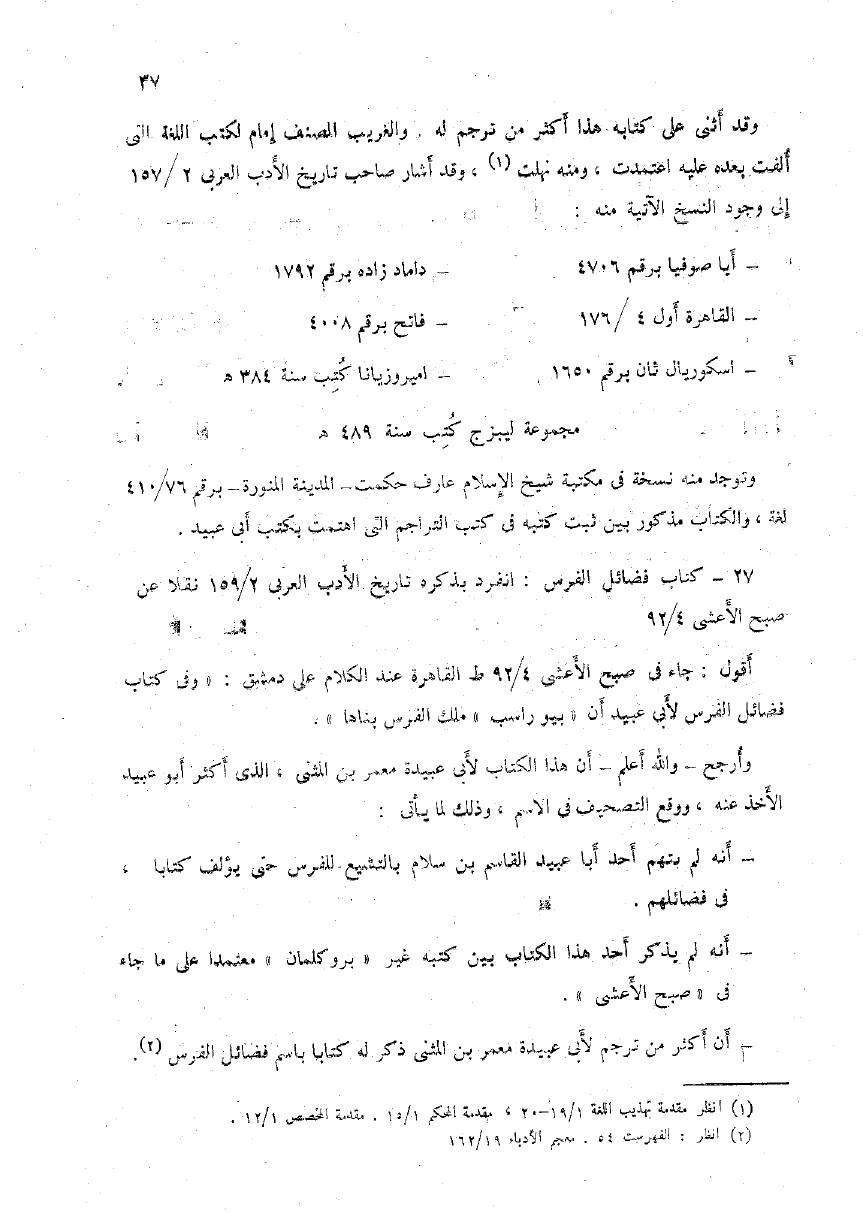 ٣٧
وقد أثنى على كتابه هذا أكثر من ترجم له . والغريب المصنف إمام لكتب اللغة التى
ألفت بعده عليه اعتمدت ، ومنه نهلت (١) ، وقد أشار صاحب تاريخ الأدب العربى ٢ /١٥٧
إلى وجود النسخ الآتية منه :
– أيا صوفيا برقم ٤٧٠٦ – داماد زاده برقم ١٧٩٢
– القاهرة أول ٤ /١٧٦ – فاتح برقم ٤٠٠٨
– اسكوريال ثان برقم ١٦٥٠ – امبروزيانا كُتِب سنة ٣٨٤ ه
مجموعة ليبزج كُتِب سنة ٤٨٩ ه
وتوجد منه نسخة فى مكتبة شيخ الإسلام عارف حكمت – المدينة المنورة – برقم ٤١٠/٧٦
لغة ، والكتاب مذكور بين ثبت كتبه فى كتب التراجم التى اهتمت بكتب أبى عبيد .
٢٧ – كتاب فضائل الفرس : انفرد بذكره تاريخ الأدب العربى ١٥٩/٢ نقلا عن
صبح الأعشى ٩٢/٤
أقول : جاء فى صبح الأعشى ٩٢/٤ ط القاهرة عند الكلام على دمشق : « وفى كتاب
فضائل الفرس لأبى عبيد أن « بيو راسب » ملك الفرس بناها » .
وأرجح – والله أعلم – أن هذا الكتاب لأبى عبيدة معمر بن المثنى ، الذى أكثر أبو عبيد
الأخذ عنه ، ووقع التصحيف فى الاسم ، وذلك لما يأتى :
– أنه لم يتهم أحد أبا عبيد القاسم بن سلام بالتشيع للفرس حتى يؤلف كتابا ،
فى فضائلهم .
– أنه لم يذكر أحد هذا الكتاب بين كتبه غير « بروكلمان » معتمدا على ما جاء
فى « صبح الأعشى » .
– أن أكثر من ترجم لأبى عبيدة معمر بن المثنى ذكر له كتابا باسم فضائل الفرس (٢) .
(١) انظر مقدمة تهذيب اللغة ١٩/١–٢٠ ، مقدمة المحكم ١٥/١ . مقدمة المخصص ١٢/١ .
(٢) انظر : الفهرست ٥٤ . معجم الأدباء ١٦٢/١٩